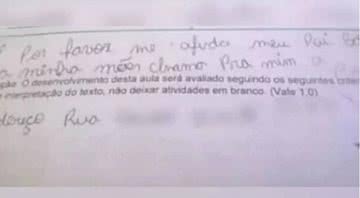 Por favor me ajuda meu Pai
a minha mãe chama Pra mim a
ção O desenvolvimento desta aula será avaliado seguindo os seguintes
interpretação do texto, não deixar atividades em branco. (Vale 1,0)
Rua